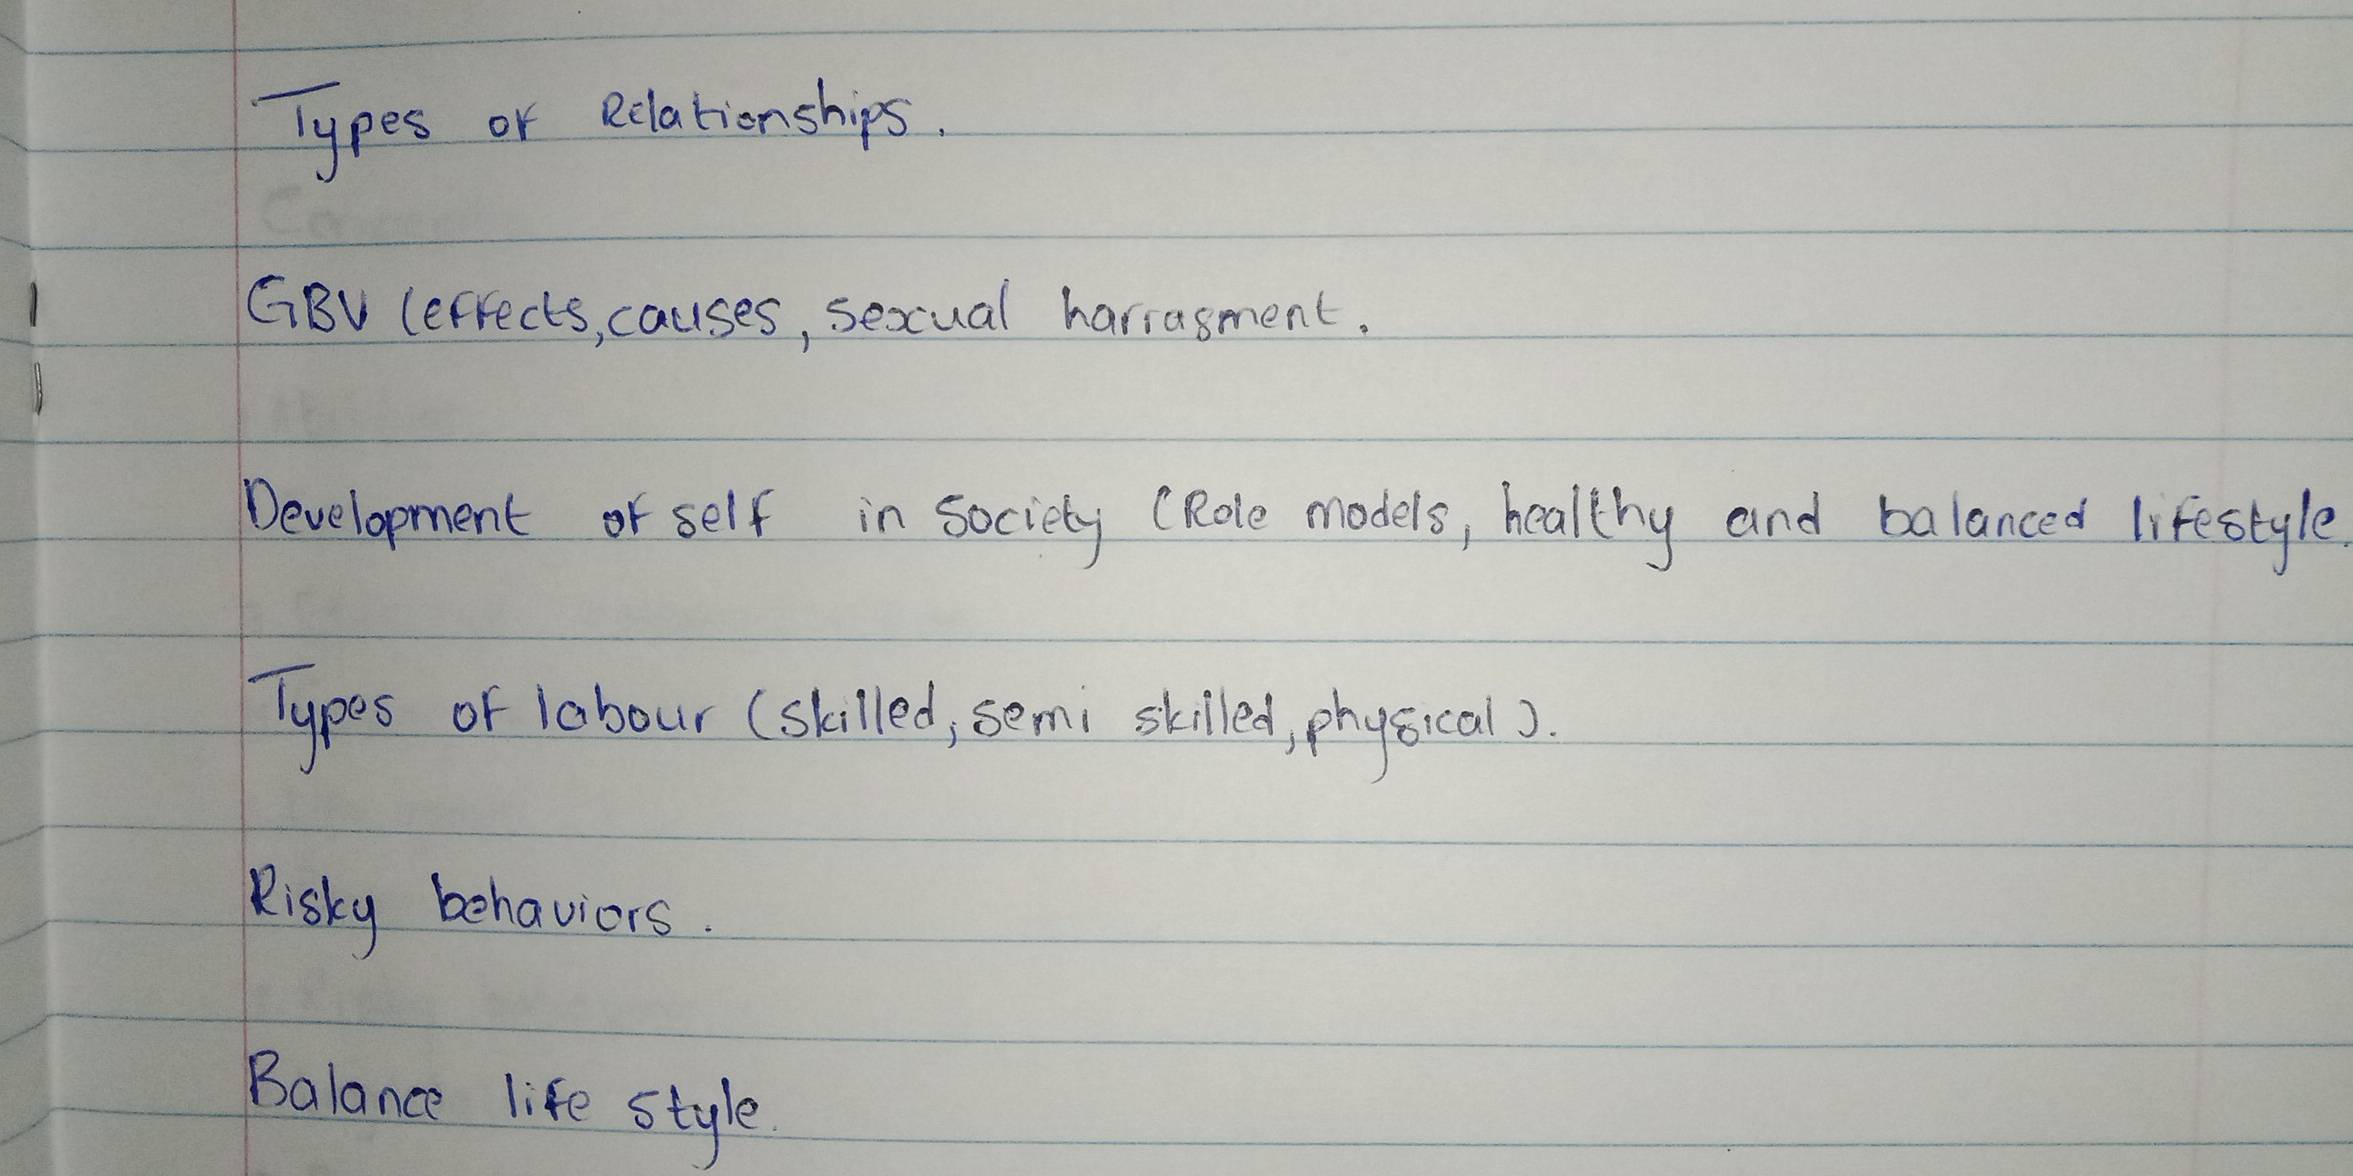 Types of Relationships.
GBV (effects, causes, sexual harrasment.
Development of self in Society (Role models, healthy and balanced lifestyle.
Types of labour (skilled, semi skilled, physical).
Risky behaviors.
Balance life style.